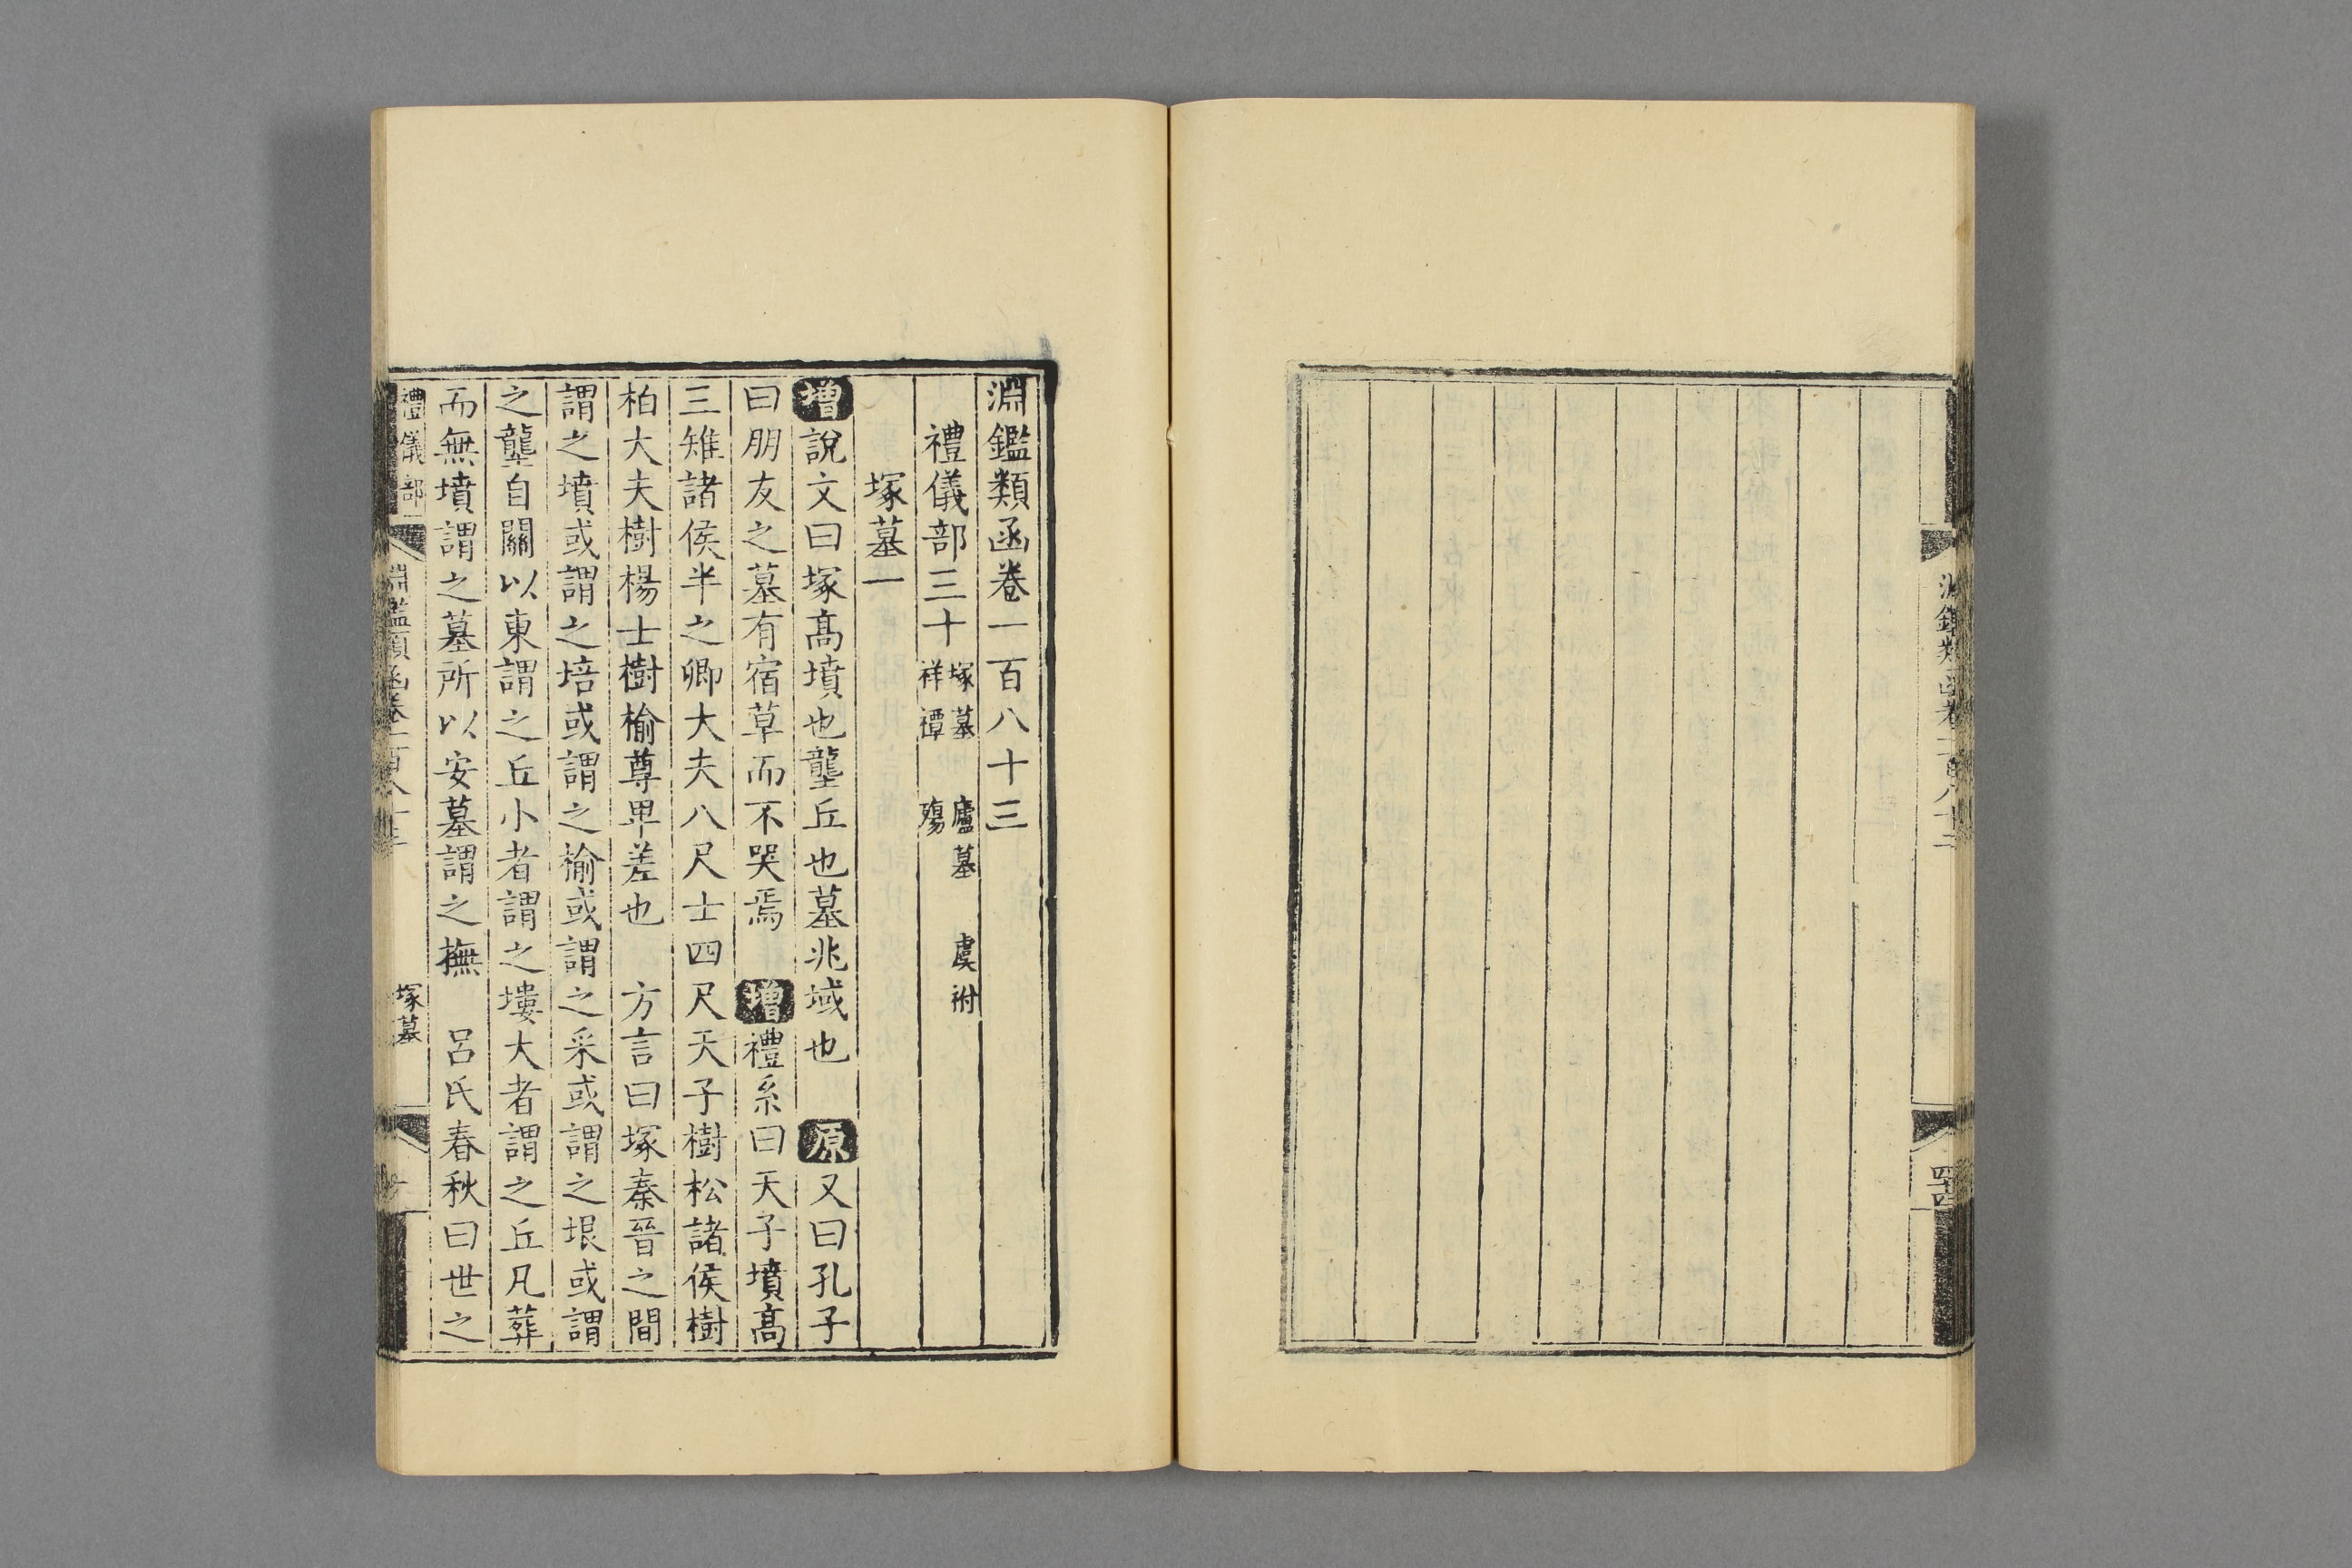 淵鑑類函卷一百八十三
禮儀部三十 塚墓 廬墓 虞祔
祥禫 殤
塚墓一
增說文曰塚高墳也壟丘也墓兆域也 原又曰孔子
曰朋友之墓有宿草而不哭焉 增禮系曰天子墳高
三雉諸侯半之卿大夫八尺士四尺天子樹松諸侯樹
柏大夫樹楊士樹榆尊卑差也 方言曰塚秦晉之間
謂之墳或謂之培或謂之揄或謂之采或謂之埌或謂
之壟自關以東謂之丘小者謂之塿大者謂之丘凡葬
而無墳謂之墓所以安墓謂之撫 呂氏春秋曰世之
禮儀部 淵鑑類函卷一百八十三 塚墓 一